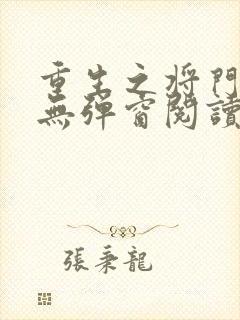 重生之将門
無彈窗閱讀
張秉龍